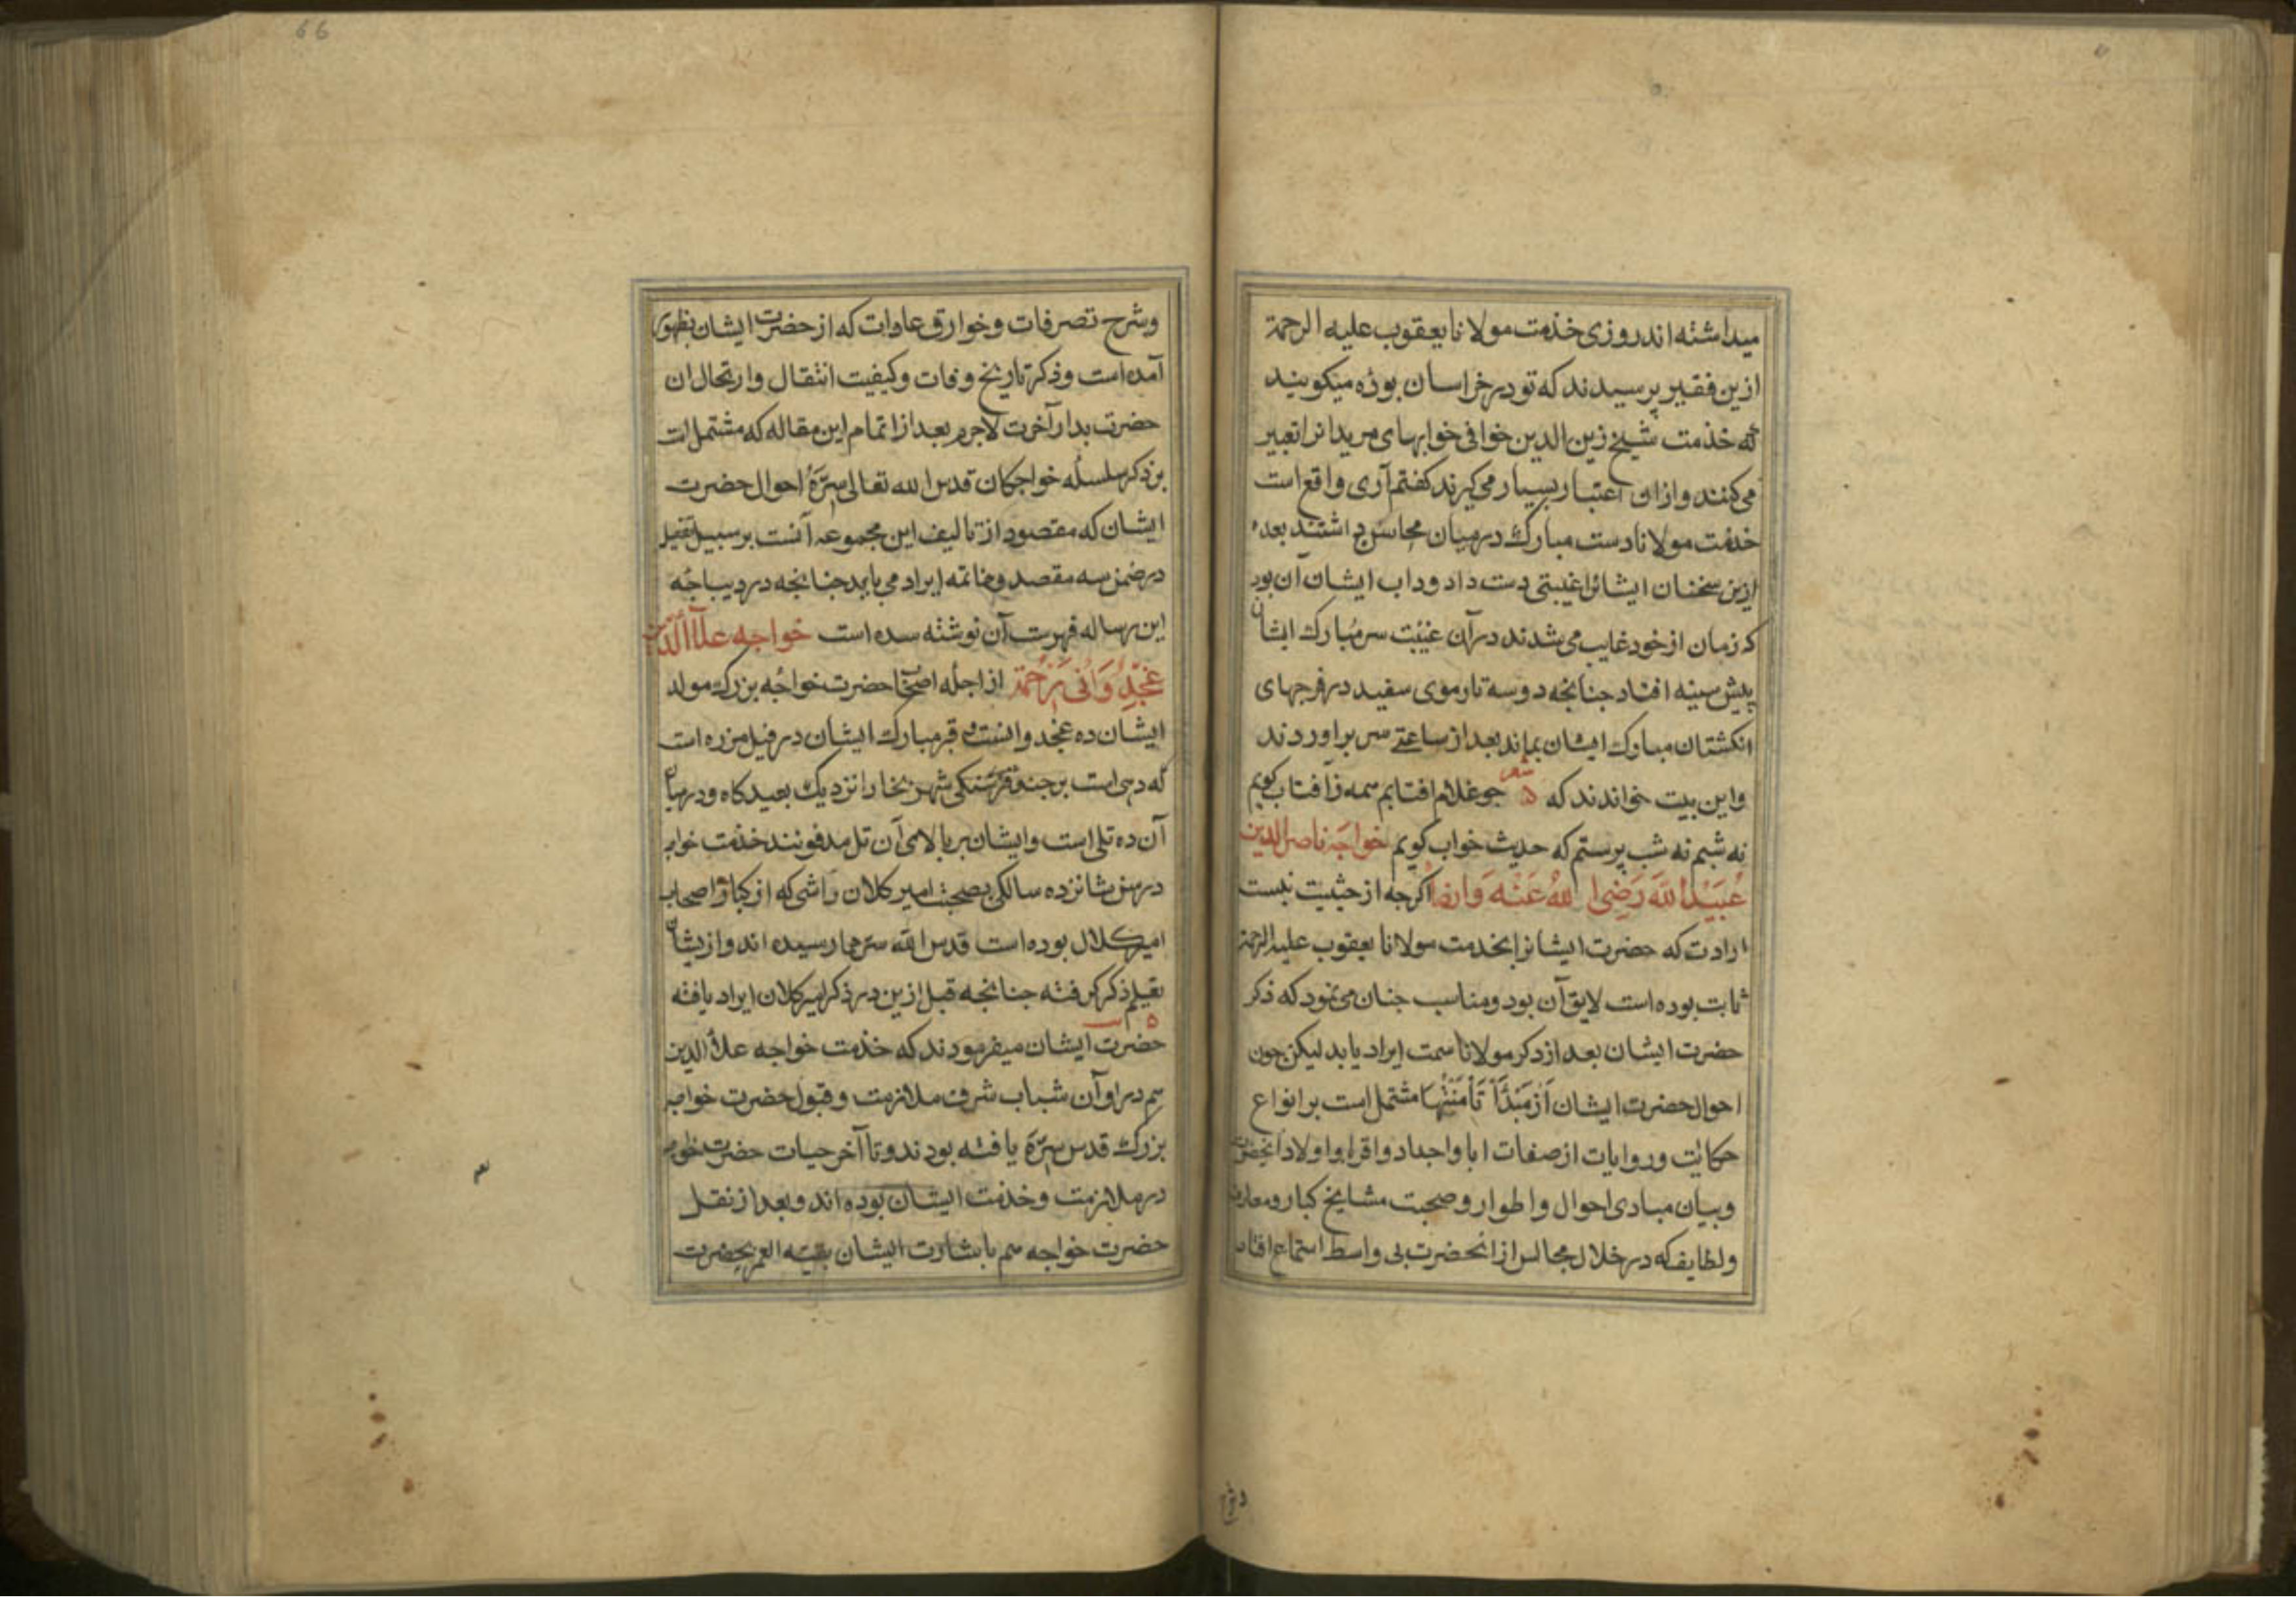 میداشته اند روزی خذمت مولانا یعقوب علیه الرحمة
ازین فقیر پرسیدند که تو در خراسان بوذه میکویند
که خذمت شیخ زین الدین خوافی خوابهای مریدانرا تعبیر
می کنند و ازان اعتبار بسیار می کیرند کفتم آری واقع است
خذمت مولانا دست مبارک در میان محاسن داشتند بعد
ازین سخنان ایشانرا غیبتی دست داد و داب ایشان آن بود
که زمان از خود غایب می شدند در آن غیبت سر مبارک ایشان
پیش سینه افتاد جنانجه دو سه تار موی سفید در فرجهای
انکشتان مبارک ایشان بماند بعد از ساعتے سر براوردند
و این بیت خواندند که شعر جو غلام افتابم همه ز آفتاب کویم
نه شبم نه شب پرستم که حدیث خواب کویم خواجه ناصر الدین
عُبَیْدُ اللهَ رَضِیَ اللهُ عَنْهُ وَ ارضا اکرجه از حیثیت نسبت
ارادت که حضرت ایشانرا بخدمت مولانا یعقوب علیه الرحمة
ثابت بوده است لایق آن بود و مناسب جنان می نمود که ذکر
حضرت ایشان بعد از ذکر مولانا سمت ایراد یابد لیکن جون
احوال حضرت ایشان اَز مَبْدَأ تَا مُنْتَها مشتمل است بر انواع
حکایت و روایات از صفات ابا و اجداد و اقربا و اولاد آنحضرت
و بیان مبادی احوال و اطوار و صحبت مشایخ کبار و معارف
و لطایف که در خلال مجالس از آنحضرت بی واسطه استماع افتاد
و شرح
66
و شرح تصرفات و خوارق عادات که از حضرت ایشان بظهور
آمده است و ذکر تاریخ وفات و کیفیت انتقال و ارتحال ان
حضرت بدار آخرت لاجرم بعد از اتمام این مقاله که مشتمل است
بر ذکر سلسله خواجکان قدس الله تعالی سرّهُ احوال حضرت
ایشان که مقصود از تالیف این مجموعه آنست بر سبیل تفصیل
در ضمن سه مقصد و خاتمه ایراد می یابد جنانجه در دیباجه
این رساله فهرست آن نوشته شده است خواجه علآ الدّین
غجدوانی رحمة از اجله اصحاب حضرت خواجه بزرک مولد
ایشان ده غجدوانست و قبر مبارک ایشان در فیل مرزه است
که دهی است بر جند فرسنکی شهر بخارا نزدیک بعیدکاه و در میان
آن ده تلی است و ایشان بر بالای آن تل مدفونند خذمت خواجه
در سن شانزده سالکی بصحبت امیر کلان واشی که از کبار اصحاب
امیر کلال بوده است قدس الله سرهما رسیده اند و ازیشان
تعلیم ذکر کرفته جنانجه قبل ازین در ذکر امیر کلان ایراد یافته
حضرت ایشان میفرمودند که خذمت خواجه علاؤ الدین
هم در اوان شباب شرف ملازمت و قبول حضرت خواجه
بزرک قدس سرّهَ یافته بودند و تا آخر حیات حضرت خواجه
در ملازمت و خذمت ایشان بوده اند و بعد از نقل
حضرت خواجه هم باشارت ایشان بقیه العمر بحضرت